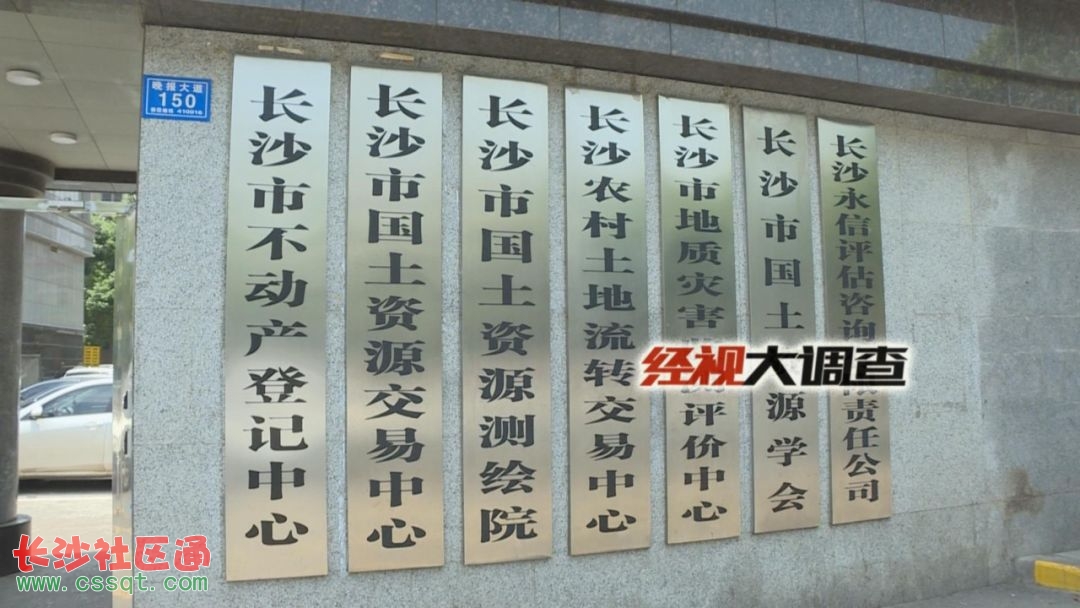 晚报大道
150
410016
长沙市不动产登记中心
长沙市国土资源交易中心
长沙市国土资源测绘院
长沙农村土地流转交易中心
长沙市地质灾害 评价中心
长沙市国土 源学会
长沙永信评估咨询 责任公司
经视大调查
长沙社区通
www.cssqt.com